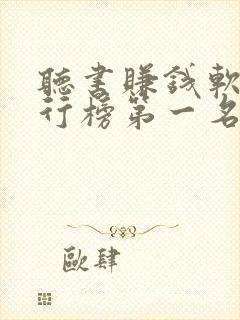 聽書賺錢軟
行榜第一名
歐肆